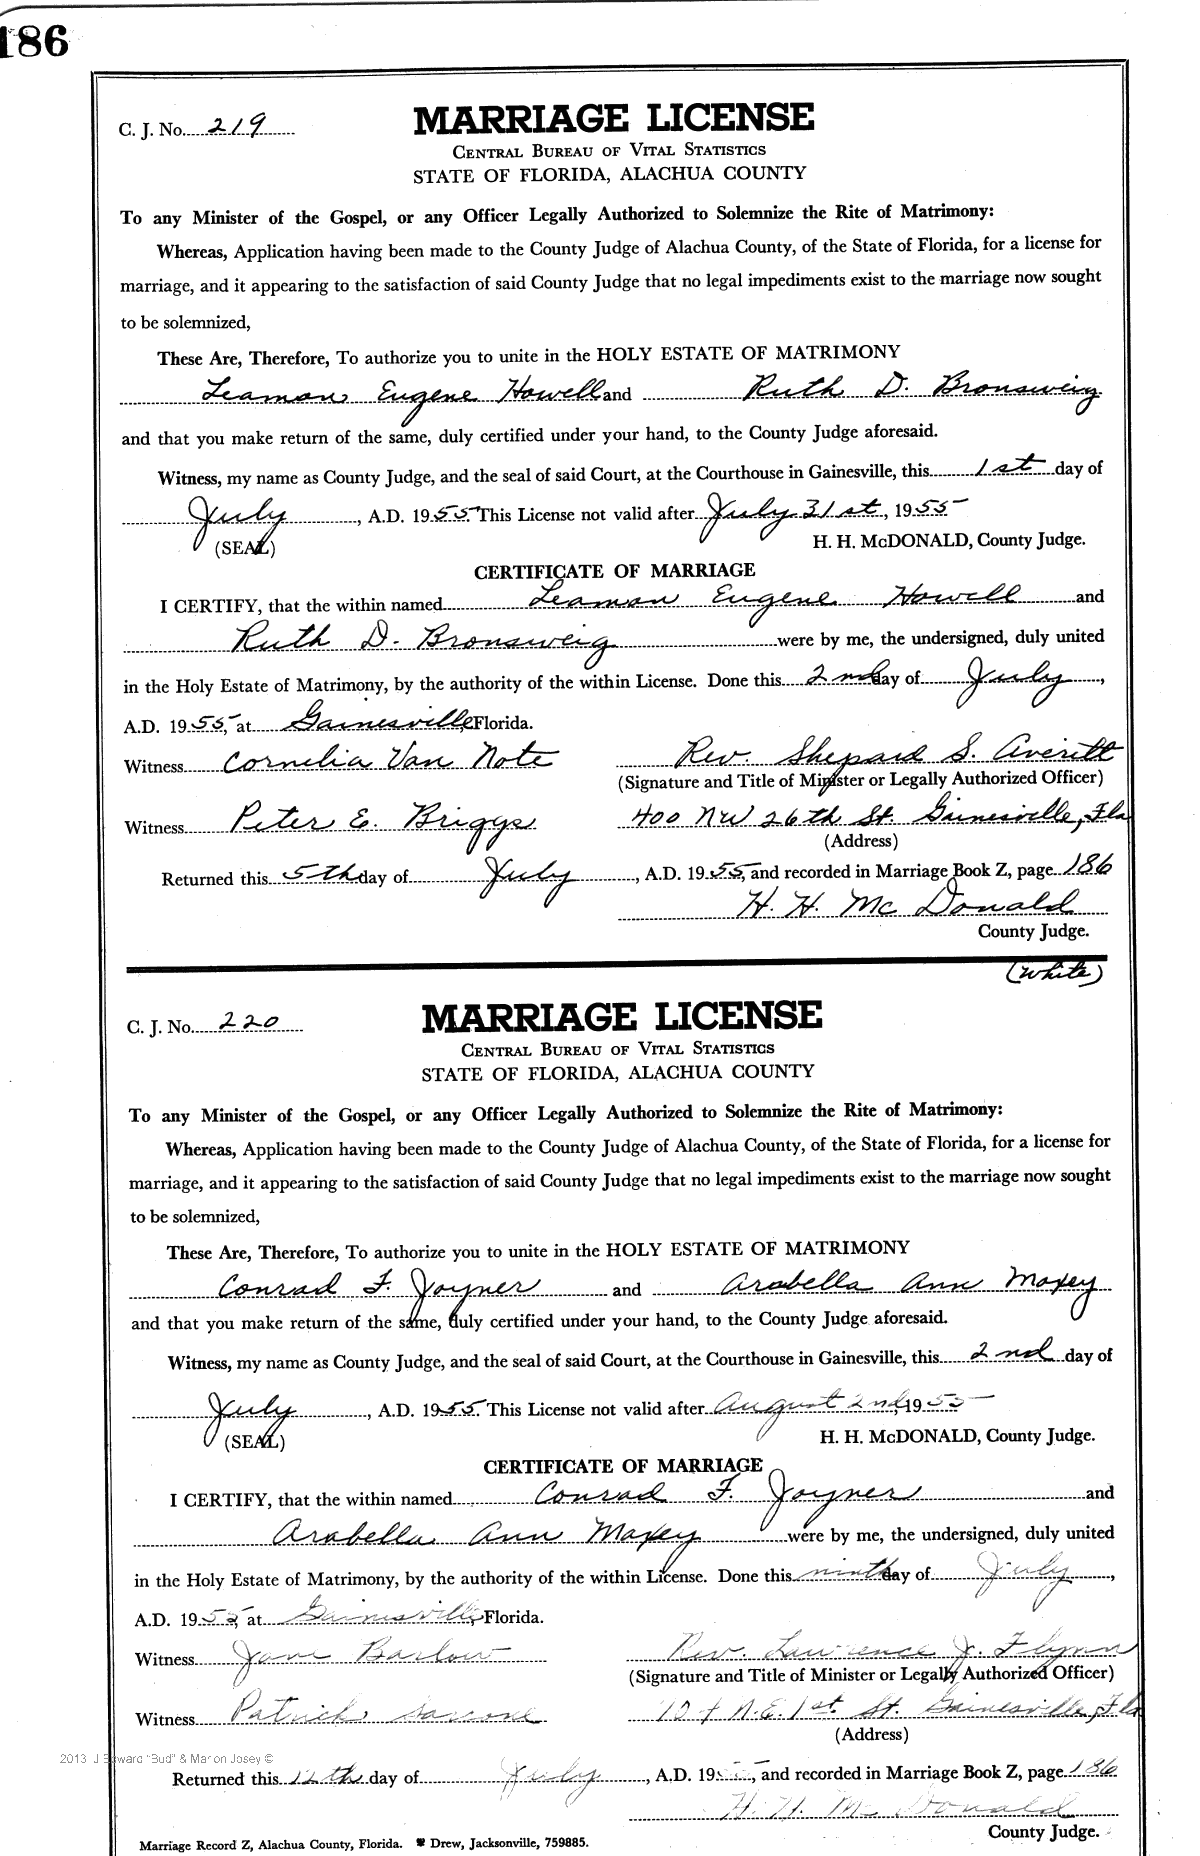 186
C. J. No. 219
MARRIAGE LICENSE
CENTRAL BUREAU OF VITAL STATISTICS
STATE OF FLORIDA, ALACHUA COUNTY
To any Minister of the Gospel, or any Officer Legally Authorized to Solemnize the Rite of Matrimony:
Whereas, Application having been made to the County Judge of Alachua County, of the State of Florida, for a license for
marriage, and it appearing to the satisfaction of said County Judge that no legal impediments exist to the marriage now sought
to be solemnized,
These Are, Therefore, To authorize you to unite in the HOLY ESTATE OF MATRIMONY
Leamon Eugene Howell and Ruth D. Bronsweig
and that you make return of the same, duly certified under your hand, to the County Judge aforesaid.
Witness, my name as County Judge, and the seal of said Court, at the Courthouse in Gainesville, this 1st day of
July, A.D. 1955. This License not valid after July 31st, 1955
(SEAL) H. H. McDONALD, County Judge.
CERTIFICATE OF MARRIAGE
I CERTIFY, that the within named Leamon Eugene Howell and
Ruth D. Bronsweig were by me, the undersigned, duly united
in the Holy Estate of Matrimony, by the authority of the within License. Done this 2nd day of July,
A.D. 1955, at Gainesville, Florida.
Witness Cornelia Van Note Rev. Shepard S. Averitt
(Signature and Title of Minister or Legally Authorized Officer)
Witness Peter E. Briggs 400 NW 26th St. Gainesville, Fla
(Address)
Returned this 5th day of July, A.D. 1955, and recorded in Marriage Book Z, page 186
H. H. McDonald
County Judge.
(White)
C. J. No. 220
MARRIAGE LICENSE
CENTRAL BUREAU OF VITAL STATISTICS
STATE OF FLORIDA, ALACHUA COUNTY
To any Minister of the Gospel, or any Officer Legally Authorized to Solemnize the Rite of Matrimony:
Whereas, Application having been made to the County Judge of Alachua County, of the State of Florida, for a license for
marriage, and it appearing to the satisfaction of said County Judge that no legal impediments exist to the marriage now sought
to be solemnized,
These Are, Therefore, To authorize you to unite in the HOLY ESTATE OF MATRIMONY
Conrad F. Joyner and Arabella Ann Maxey
and that you make return of the same, duly certified under your hand, to the County Judge aforesaid.
Witness, my name as County Judge, and the seal of said Court, at the Courthouse in Gainesville, this 2nd day of
July, A.D. 1955. This License not valid after August 2nd, 1955
(SEAL) H. H. McDONALD, County Judge.
CERTIFICATE OF MARRIAGE
I CERTIFY, that the within named Conrad F. Joyner and
Arabella Ann Maxey were by me, the undersigned, duly united
in the Holy Estate of Matrimony, by the authority of the within License. Done this ninth day of July,
A.D. 1955, at Gainesville, Florida.
Witness Jane Barlow Rev. Lawrence J. Flynn
(Signature and Title of Minister or Legally Authorized Officer)
Witness Patrick N.E. 1st. St. Gainesville, Fla
(Address)
2013 J Edward "Bud" & Marion Josey ©
Returned this 12th day of July, A.D. 1955, and recorded in Marriage Book Z, page 186
H. H. McDonald
County Judge.
Marriage Record Z, Alachua County, Florida. Drew, Jacksonville, 759885.